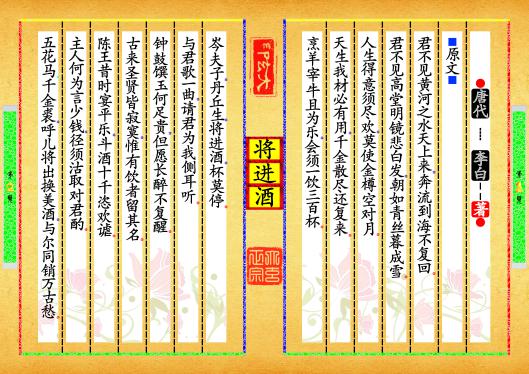 唐代 ---- 李白 -- 著
■原文■
君不见黄河之水天上来奔流到海不复回
君不见高堂明镜悲白发朝如青丝暮成雪
人生得意须尽欢莫使金樽空对月
天生我材必有用千金散尽还复来
烹羊宰牛且为乐会须一饮三百杯
将进酒
岑夫子丹丘生将进酒杯莫停
与君歌一曲请君为我侧耳听
钟鼓馔玉何足贵但愿长醉不复醒
古来圣贤皆寂寞惟有饮者留其名
陈王昔时宴平乐斗酒十千恣欢谑
主人何为言少钱径须沽取对君酌
五花马千金裘呼儿将出换美酒与尔同销万古愁